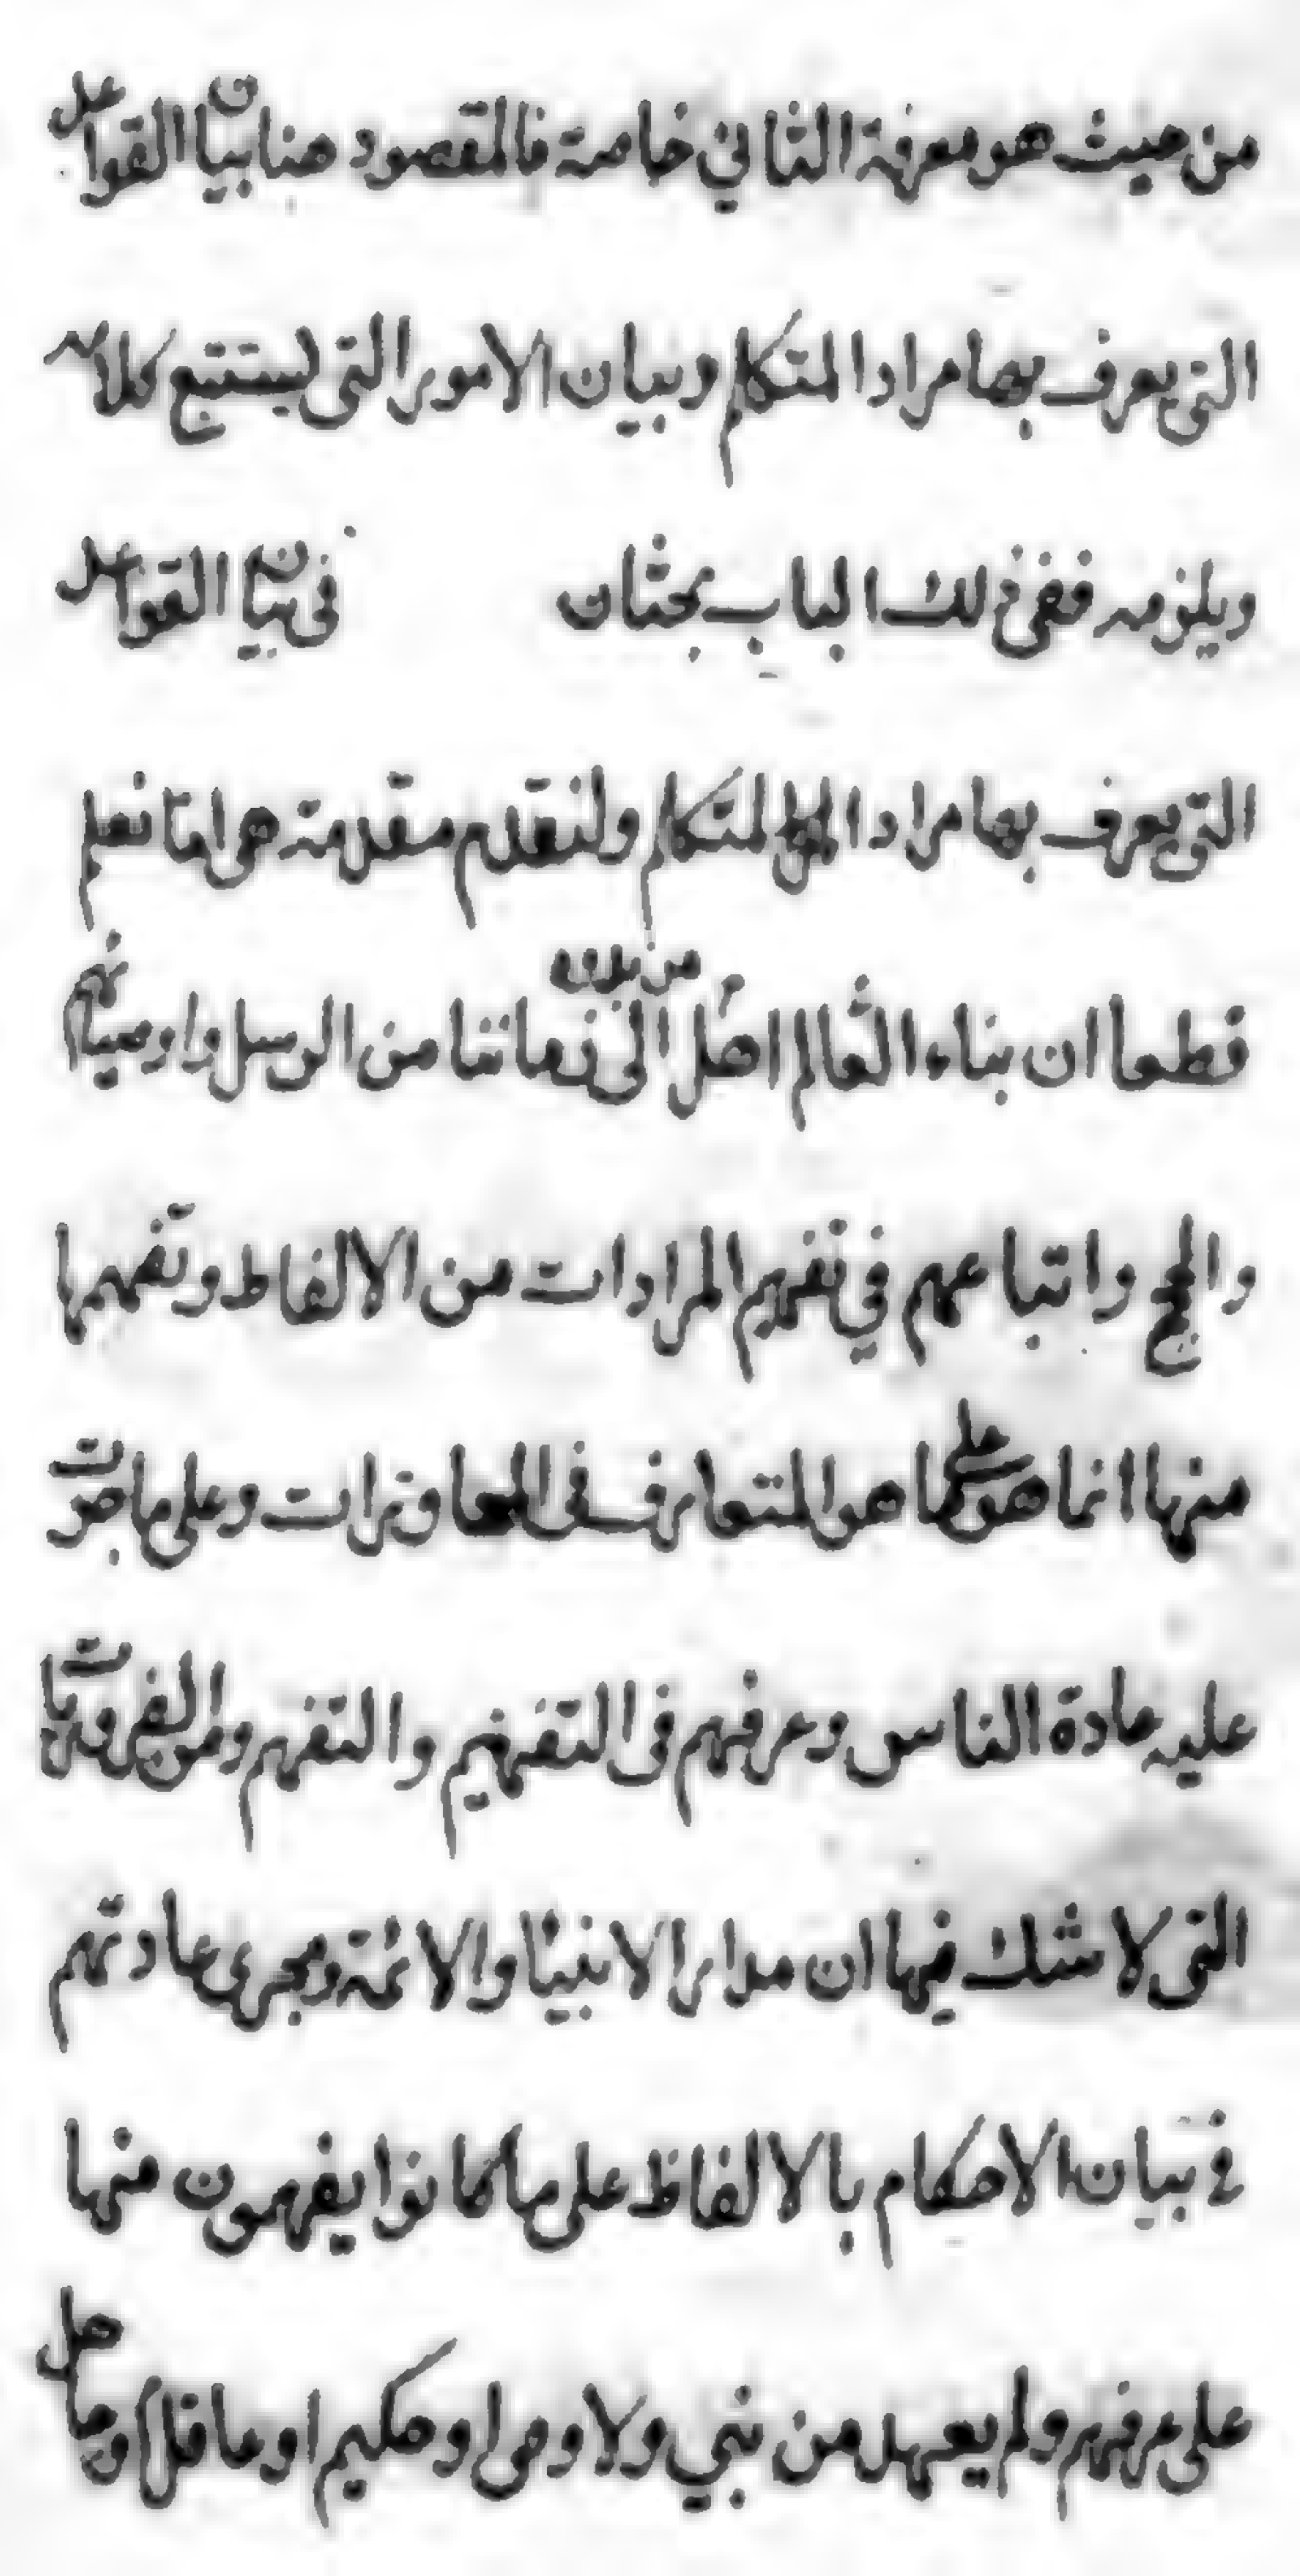 من حيث هو معرفة الثاني خاصة فالمقصود هنا بيان القواعد
التي يعرف بها مراد المتكلم وبيان الامور التي ليستتبع كلامه
ويلزمه ففي ذلك الباب بحثان في بيان القواعد
التي يعرف بها مراد المتكلم ولنقدم مقدمة هي انا نعلم
قطعا ان بناء العالم اصل من بدن الى زماننا من الرسل واوصيائهم
والحجج واتباعهم في تفهيم المرادات من الالفاظ وتفهمها
منها انما هو على ما هو المتعارف في المحاورات وعلى ما جرت
عليه عادة الناس وعرفهم في التفهيم والتفهم ومن الضروريات
التي لا شك فيها ان مدار الانبيا والائمة ومجرى عادتهم
في بيان الاحكام بالالفاظ على ما كانوا يفهمون منها
على عرفهم ولم يعهد من نبي ولا وصي او حكيم او عاقل او جاهل